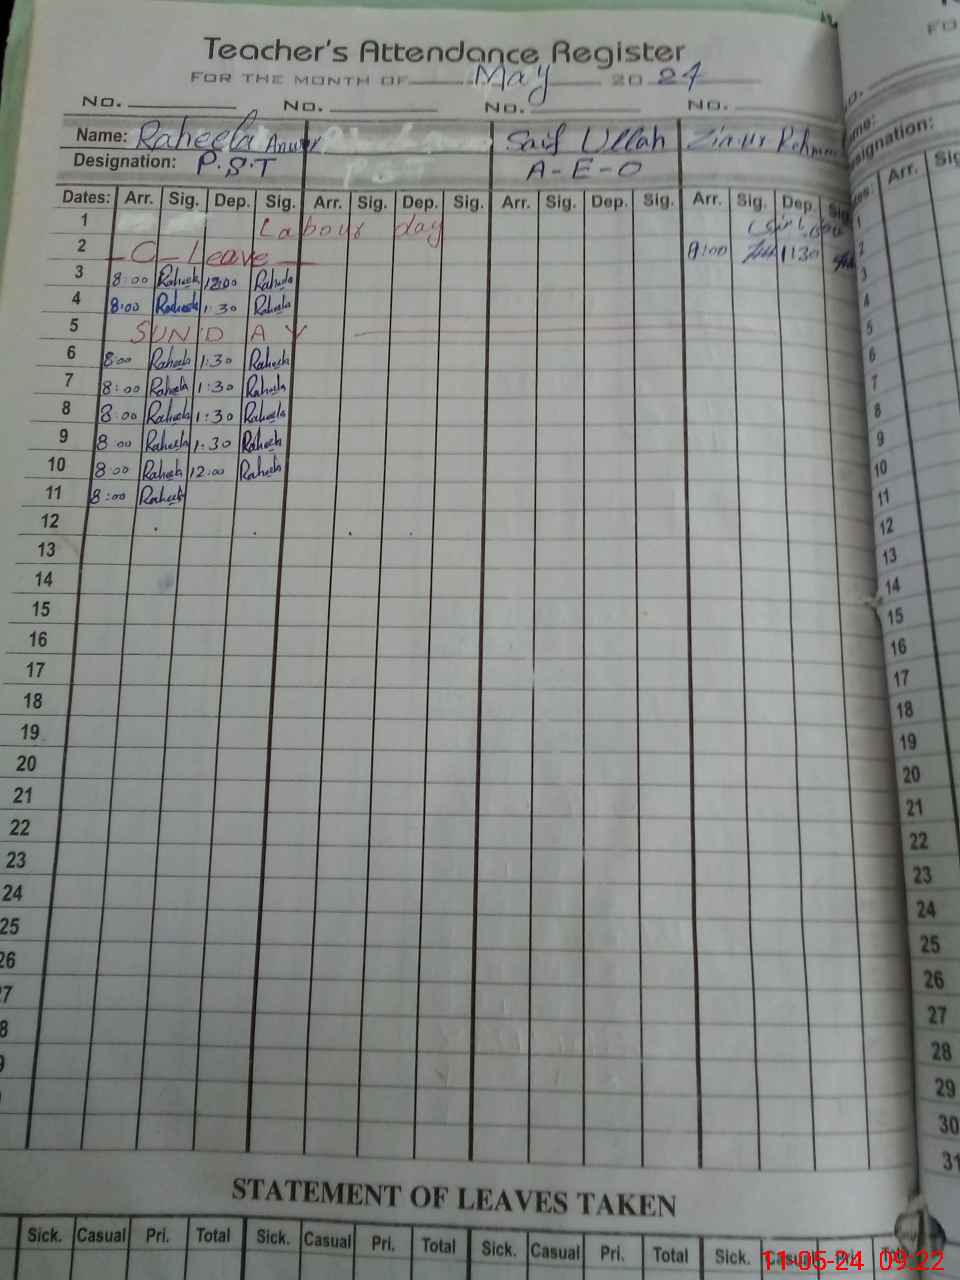 Teacher's Attendance Register
FOR THE MONTH OF May 2024
No. No. No. No.
Name: Raheela Anwar Saif Ullah Ziaur Rehman
Designation: P.S.T A-E-O
Dates: Arr. Sig. Dep. Sig. Arr. Sig. Dep. Sig. Arr. Sig. Dep. Sig. Arr. Sig. Dep. Sig
1 Labour day
2 C-Leave 8:00 1:30
3 8:00 Raheela 12:00 Raheela
4 8:00 Raheela 1:30 Raheela
5 SUNDAY
6 8:00 Raheela 1:30 Raheela
7 8:00 Raheela 1:30 Raheela
8 8:00 Raheela 1:30 Raheela
9 8:00 Raheela 1:30 Raheela
10 8:00 Raheela 12:00 Raheela
11 8:00 Raheela
12
13
14
15
16
17
18
19
20
21
22
23
24
25
26
7
8
9
STATEMENT OF LEAVES TAKEN
Sick. Casual Pri. Total Sick. Casual Pri. Total Sick. Casual Pri. Total Sick. Casual Pri.
11-05-24 09:22
FO
me:
signation:
es: Arr. Sig
1
2
3
4
5
6
7
8
9
10
11
12
13
14
15
16
17
18
19
20
21
22
23
24
25
26
27
28
29
30
31